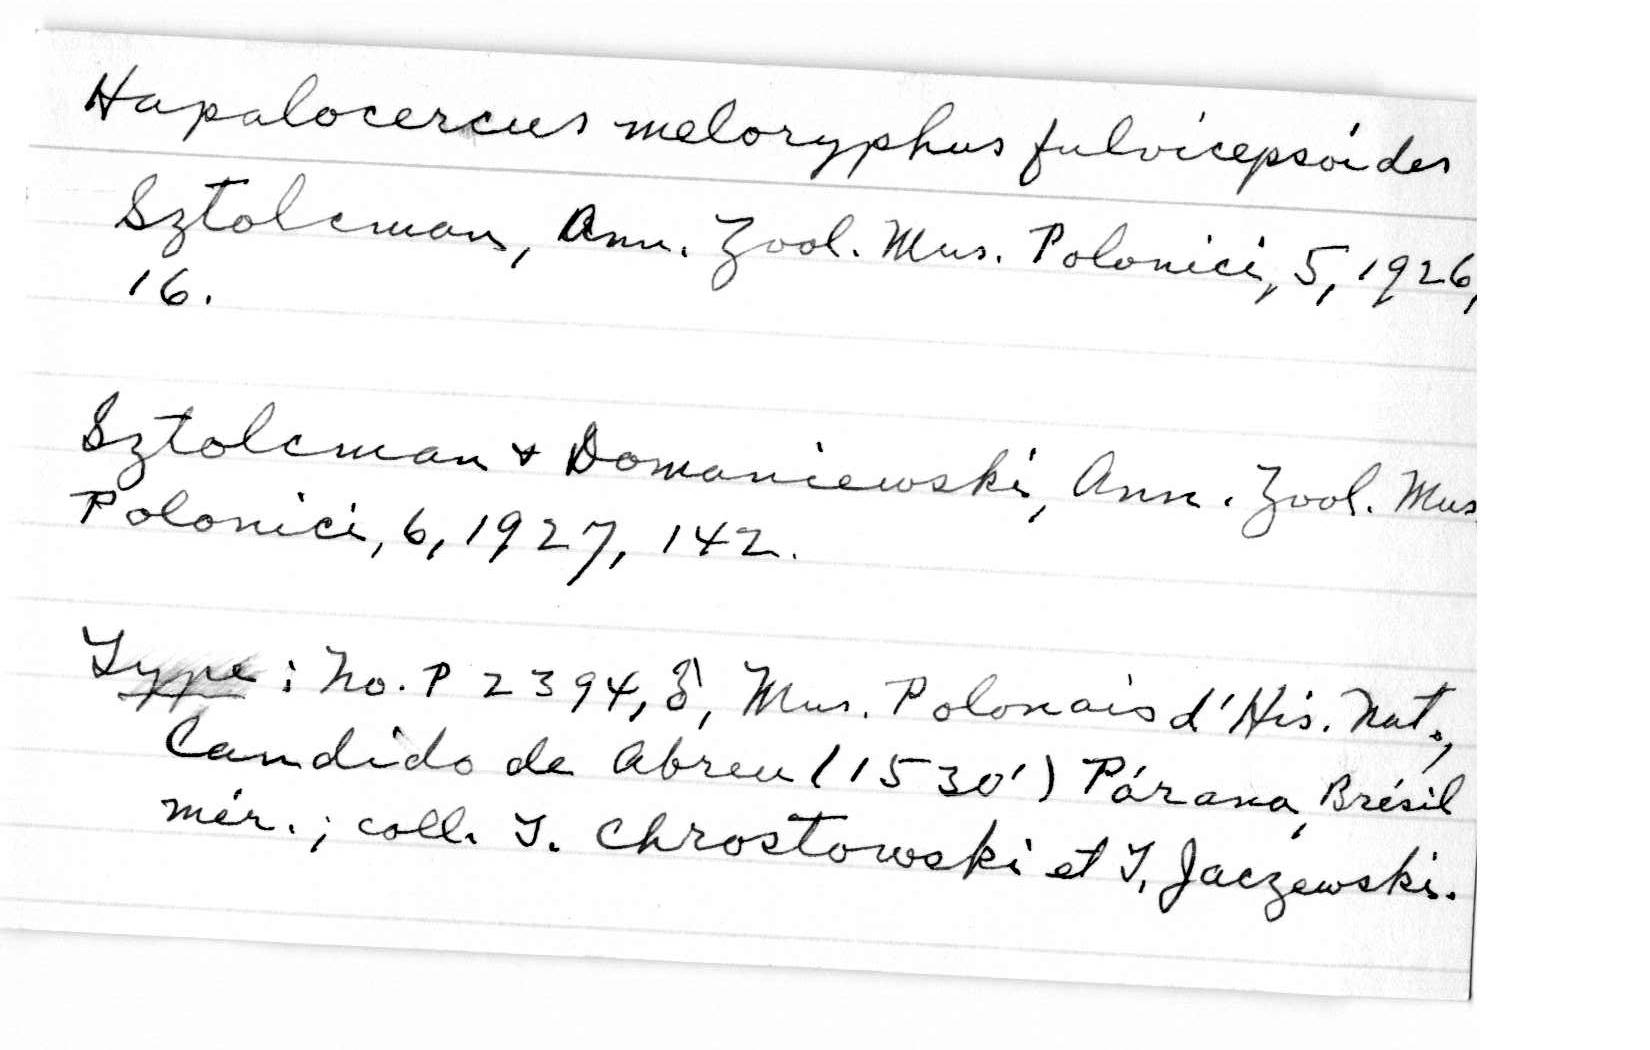 Hapalocercus meloryphus fulvicepsoides
Sztolcman, Ann. Zool. Mus. Polonici, 5, 1926,
16.
Sztolcman + Domaniewski, Ann. Zool. Mus
Polonici, 6, 1927, 142.
Type: No. P 2394, ♂, Mus. Polonais d'His. Nat.,
Candido de Abreu (1530') Párana, Brésil
mér.; coll. T. Chrostowski et T. Jaczewski.